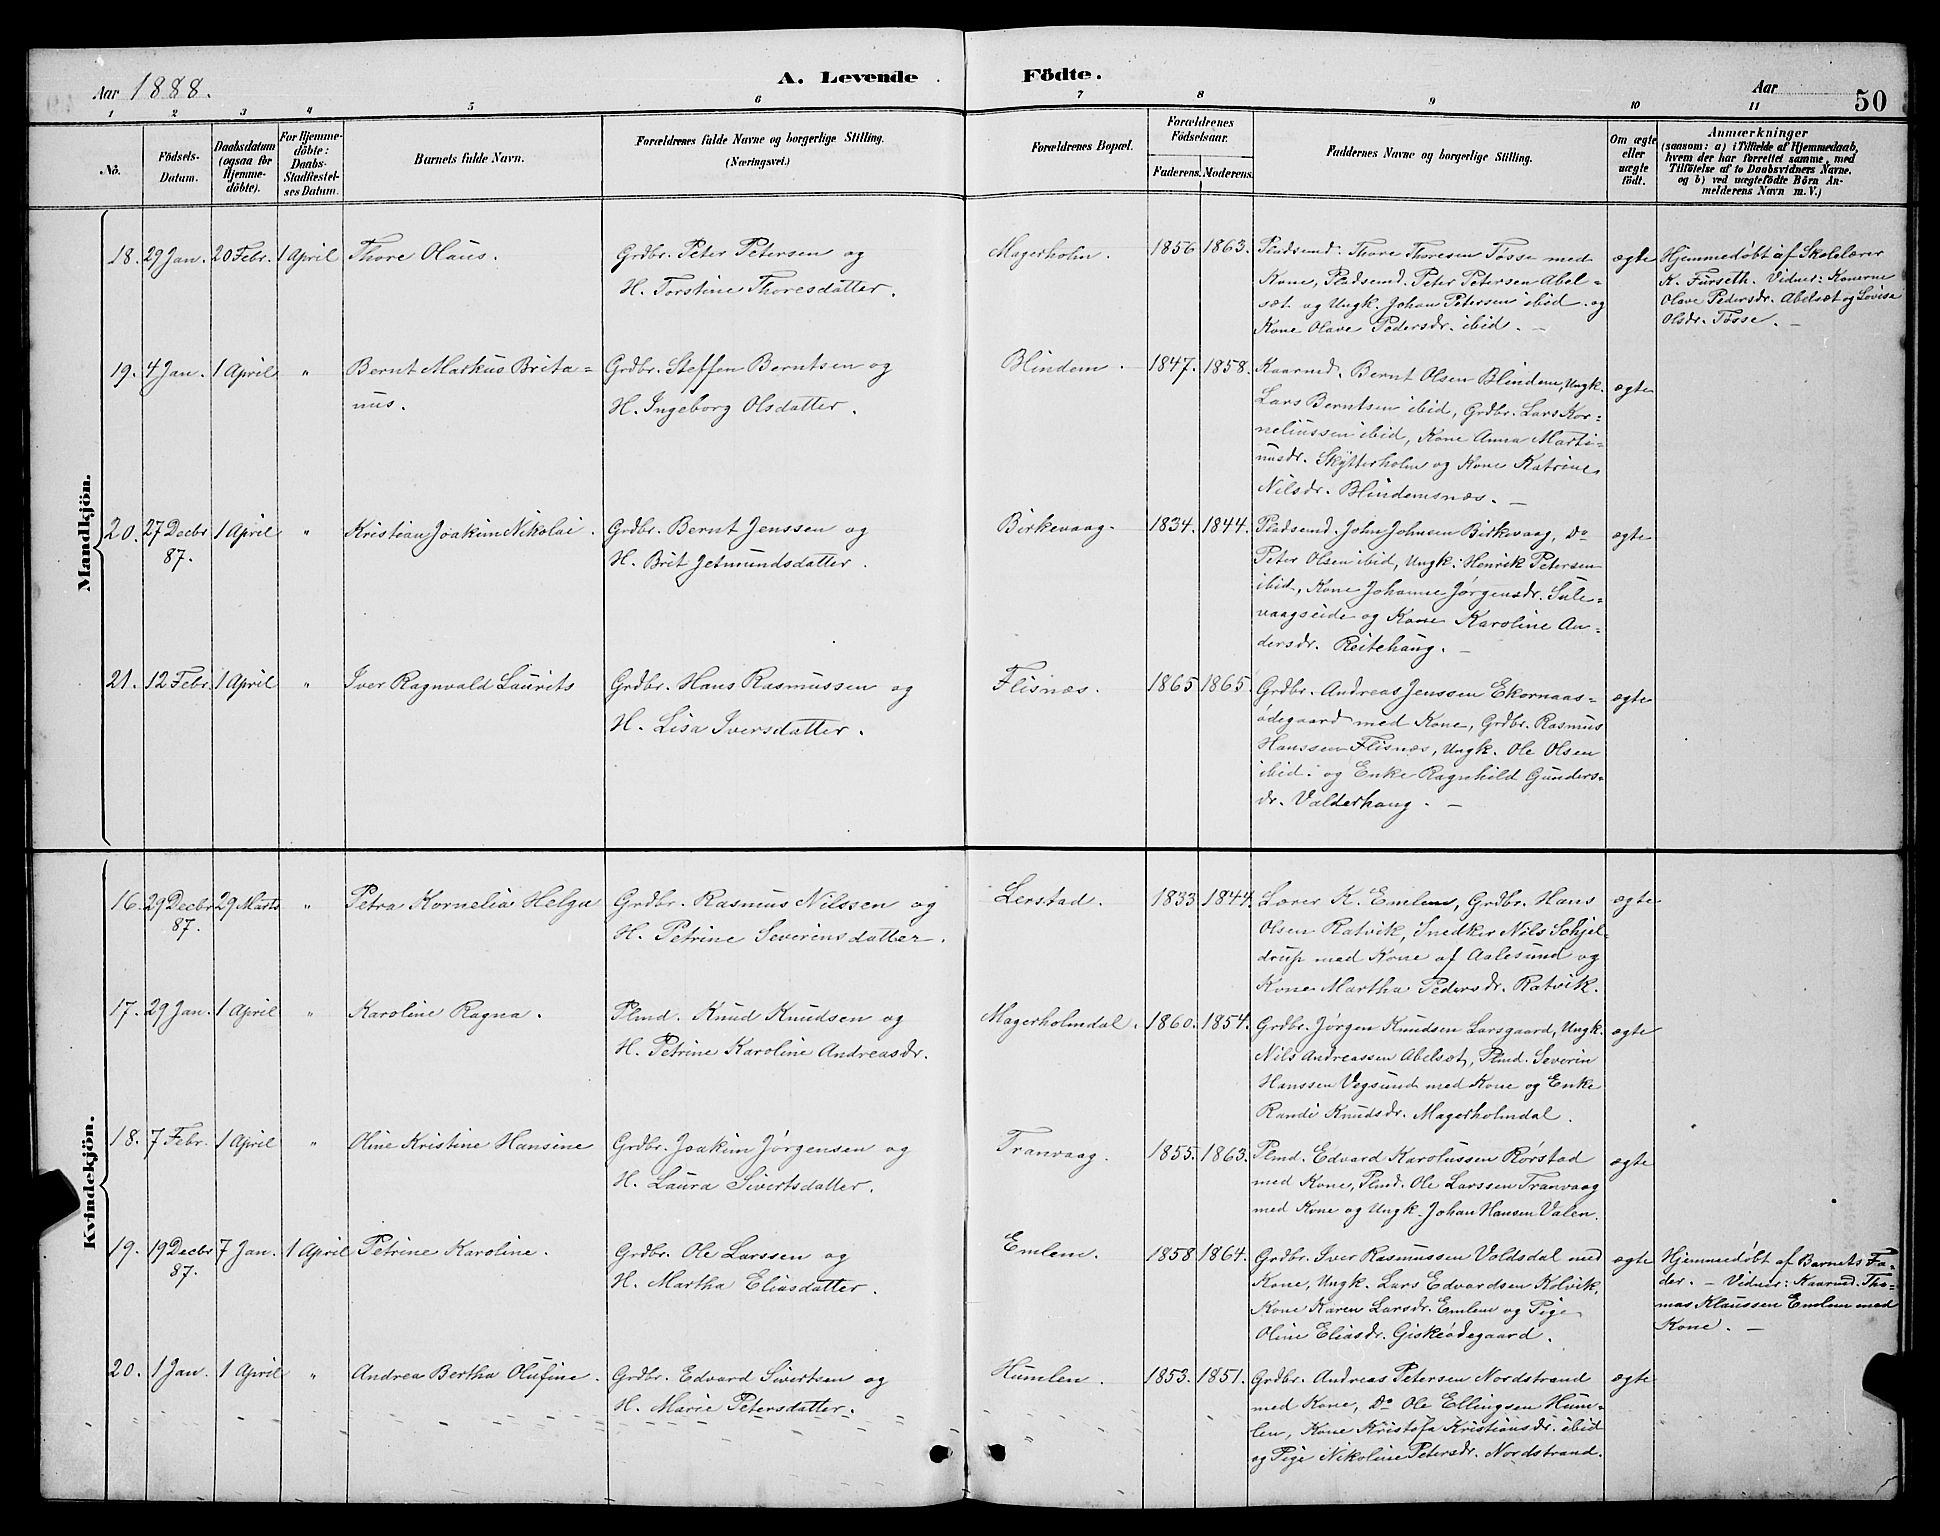 Aar 1888. A. Levende Födte. Aar 50
1 2 3 4 5 6 7 8 9 10 11
No.
Födsels-
Datum.
Daabsdatum
(ogsaa for
Hjemme-
döbte).
For Hjemme-
döbte:
Daabs-
Stadfæstel-
ses Datum.
Barnets fulde Navn.
Forældrenes fulde Navne og borgerlige Stilling.
(Næringsvei.)
Forældrenes Bopæl.
Forældrenes
Födselsaar.
Faderens. Moderens.
Faddernes Navne og borgerlige Stilling.
Om ægte
eller
uægte
födt.
Anmærkninger
(saasom: a) i Tilfælde af Hjemmedaab,
hvem der har forrettet samme, med
Tilföielse af to Daabsvidners Navne,
og b) ved uægtefödte Börn An-
melderens Navn m. V.)
Mandkjön.
18. 29 Jan. 20 Febr. 1 April Thore Olaus.
Grdbr. Peter Petersen og
H. Torstine Thoresdatter.
Magerholm. 1856 1863.
Pladsemd. Thore Thoresen Tøsse med
Kone, Pladsemd. Peter Petersen Abel=
sæt og Ungk. Johan Petersen ibid. og
Kone Olave Pedersdr. ibid. —
ægte
Hjemmedøbt af Skolelærer
K. Furseth. Vidner: Konerne
Olave Pedersdr. Abelsæt og Lovise
Olsdr. Tøsse. —
19. 4 Jan. 1 April " Bernt Markus Brita=
nus.
Grdbr. Steffen Berntsen og
H. Ingeborg Olsdatter.
Blindem. 1847. 1858.
Kaarmd. Bernt Olsen Blindem, Ungk.
Lars Berntsen ibid, Grdbr. Lars Kor=
neliussen ibid, Kone Anna Marti=
nusdr. Skytterholm og Kone Katrine
Nilsdr. Blindemsnæs. —
ægte
20. 27 Decbr 1 April " Kristian Joakim Nikolai.
87.
Grdbr. Bernt Jenssen og
H. Brit Jetmundsdatter.
Birkevaag. 1834. 1844.
Pladsemd. John Johnsen Birkevaag, Do
Peter Olsen ibid, Ungk. Henrik Petersen
ibid, Kone Johanne Jørgensdr. Sule=
vaagseide og Kone Karoline An=
dersdr. Reitehaug. —
ægte
21. 12 Febr. 1 April " Iver Ragnvald Laurits
Grdbr. Hans Rasmussen og
H. Lisa Iversdatter.
Flisnæs. 1865 1865.
Grdbr. Andreas Jenssen Ekornaas=
ødegaard med Kone, Grdbr. Rasmus
Hanssen Flisnæs, Ungk. Ole Olsen
ibid. og Enke Ragnhild Gunders=
dr. Valderhaug. —
ægte
Kvindekjön.
16. 29 Decbr 29 Marts " Petra Kornelia Helga
87.
Grdbr. Rasmus Nilssen og
H. Petrine Severinsdatter.
Lerstad. 1833 1844.
Lærer K. Emlem, Grdbr. Hans
Olsen Ratvik, Snedker Nils Schjel=
drup med Kone af Aalesund og
Kone Martha Pedersdr. Ratvik.
ægte
17. 29 Jan. 1 April " Karoline Ragna.
Plmd. Knud Knudsen og
H. Petrine Karoline Andreasdr.
Magerholmdal. 1860. 1854.
Grdbr. Jørgen Knudsen Larsgaard, Ungk.
Nils Andreassen Abelsæt, Plmd. Severin
Hanssen Vegsund med Kone og Enke
Randi Knudsdr. Magerholmdal.
ægte
18. 7 Febr. 1 April " Oline Kristine Hansine
Grdbr. Joakim Jørgensen og
H. Laura Sivertsdatter.
Tranvaag. 1855. 1863.
Plmd. Edvard Karolussen Rørstad
med Kone, Plmd. Ole Larssen Tranvaag
med Kone og Ungk. Johan Hansen Valen.
ægte
19. 19 Decbr 7 Jan. 1 April Petrine Karoline.
87.
Grdbr. Ole Larssen og
H. Martha Eliasdatter.
Emlem. 1858 1864.
Grdbr. Iver Rasmussen Voldsdal med
Kone, Ungk. Lars Edvardsen Kolvik,
Kone Karen Larsdr. Emlem og Pige
Oline Eliasdr. Giskeødegaard.
ægte
Hjemmedøbt af Barnets Fa=
der. — Vidner: Kaarmd. Tho=
mas Klaussen Emlem med
Kone. —
20. 1 Jan. 1 April " Andrea Bertha Olufine.
Grdbr. Edvard Sivertsen og
H. Marie Petersdatter.
Humlen. 1853. 1851.
Grdbr. Andreas Petersen Nordstrand
med Kone, Do Ole Ellingsen Hum=
len, Kone Kristofa Kristiansdr. ibid
og Pige Nikoline Petersdr. Nordstrand.
ægte